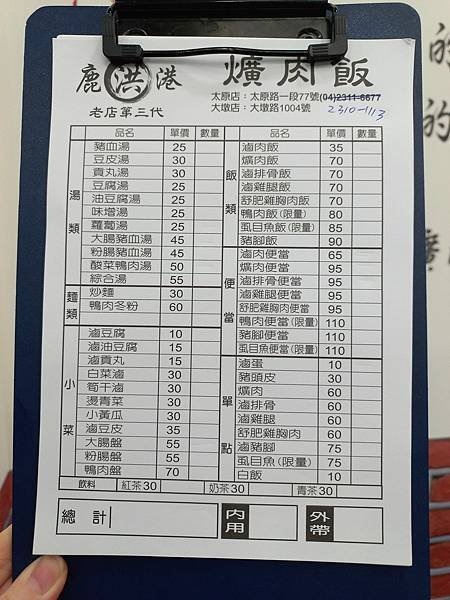 鹿洪港 爌肉飯
老店第三代
太原店：太原路一段77號(04)2311-6677
大墩店：大墩路1004號 2310-1113
品名 單價 數量
湯類
豬血湯 25
豆皮湯 30
貢丸湯 30
豆腐湯 25
油豆腐湯 25
味增湯 25
蘿蔔湯 25
大腸豬血湯 45
粉腸豬血湯 45
酸菜鴨肉湯 50
綜合湯 55
麵類
炒麵 30
鴨肉冬粉 60
小菜
滷豆腐 10
滷油豆腐 15
滷貢丸 15
白菜滷 30
筍干滷 30
燙青菜 30
小黃瓜 30
滷豆皮 35
大腸盤 55
粉腸盤 55
鴨肉盤 70
品名 單價 數量
飯類
滷肉飯 35
爌肉飯 70
滷排骨飯 70
滷雞腿飯 70
舒肥雞胸肉飯 70
鴨肉飯(限量) 80
虱目魚飯(限量) 85
豬腳飯 90
便當
滷肉便當 65
爌肉便當 95
滷排骨便當 95
滷雞腿便當 95
舒肥雞胸肉便當 95
鴨肉便當(限量) 110
豬腳便當 110
虱目魚便當(限量) 110
單點
滷蛋 10
豬頭皮 30
爌肉 60
滷排骨 60
滷雞腿 60
舒肥雞胸肉 60
滷豬腳 75
虱目魚(限量) 75
白飯 10
飲料 紅茶30 奶茶30 青茶30
總計 內用 外帶
的
的